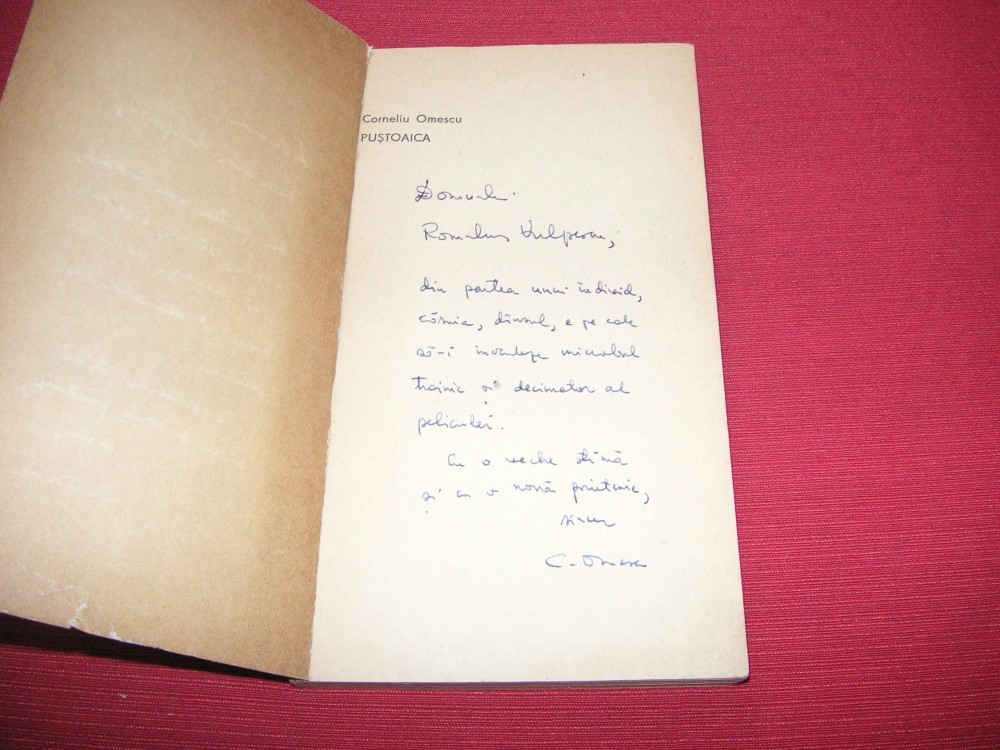 Corneliu Omescu
PUȘTOAICA
Domnului
Romulus Vulpescu,
din partea unui individ,
căruia, dînsul, e pe cale
să-i inoculeze microbul
trainic și decimator al
peliculei.
Cu o veche stimă
și cu o nouă prietenie,
sincer
C. Omescu